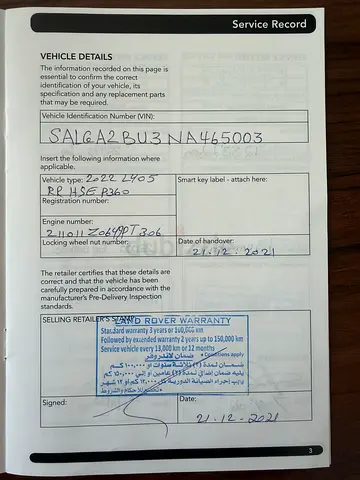 Service Record
VEHICLE DETAILS
The information recorded on this page is
essential to confirm the correct
identification of your vehicle, its
specification and any replacement parts
that may be required.
Vehicle Identification Number (VIN):
SALGA2BU3NA465003
Insert the following information where
applicable.
Vehicle type: 2022 L405
RR HSE P360
Smart key label - attach here:
Registration number:
Engine number:
211011Z0649PT306
Locking wheel nut number:
Date of handover:
21-12-2021
The retailer certifies that these details are
correct and that the vehicle has been
carefully prepared in accordance with the
manufacturer's Pre-Delivery Inspection
standards.
SELLING RETAILER'S STAMP
LAND ROVER WARRANTY
Standard warranty 3 years or 100,000 km
Followed by extended warranty 2 years up to 150,000 km
Service vehicle every 13,000 km or 12 months
ضمان لاندروفر • Conditions apply
ضمان لمدة (٣) ثلاثة سنوات أو ١٠٠,٠٠٠ كم
يليه ضمان إضافي لمدة (٢) عامين أو إلى ١٥٠,٠٠٠ كم
يجب إجراء الصيانة الدورية كل ١٣,٠٠٠ كم أو ١٢ شهر
Signed:
Date:
21-12-2021
3